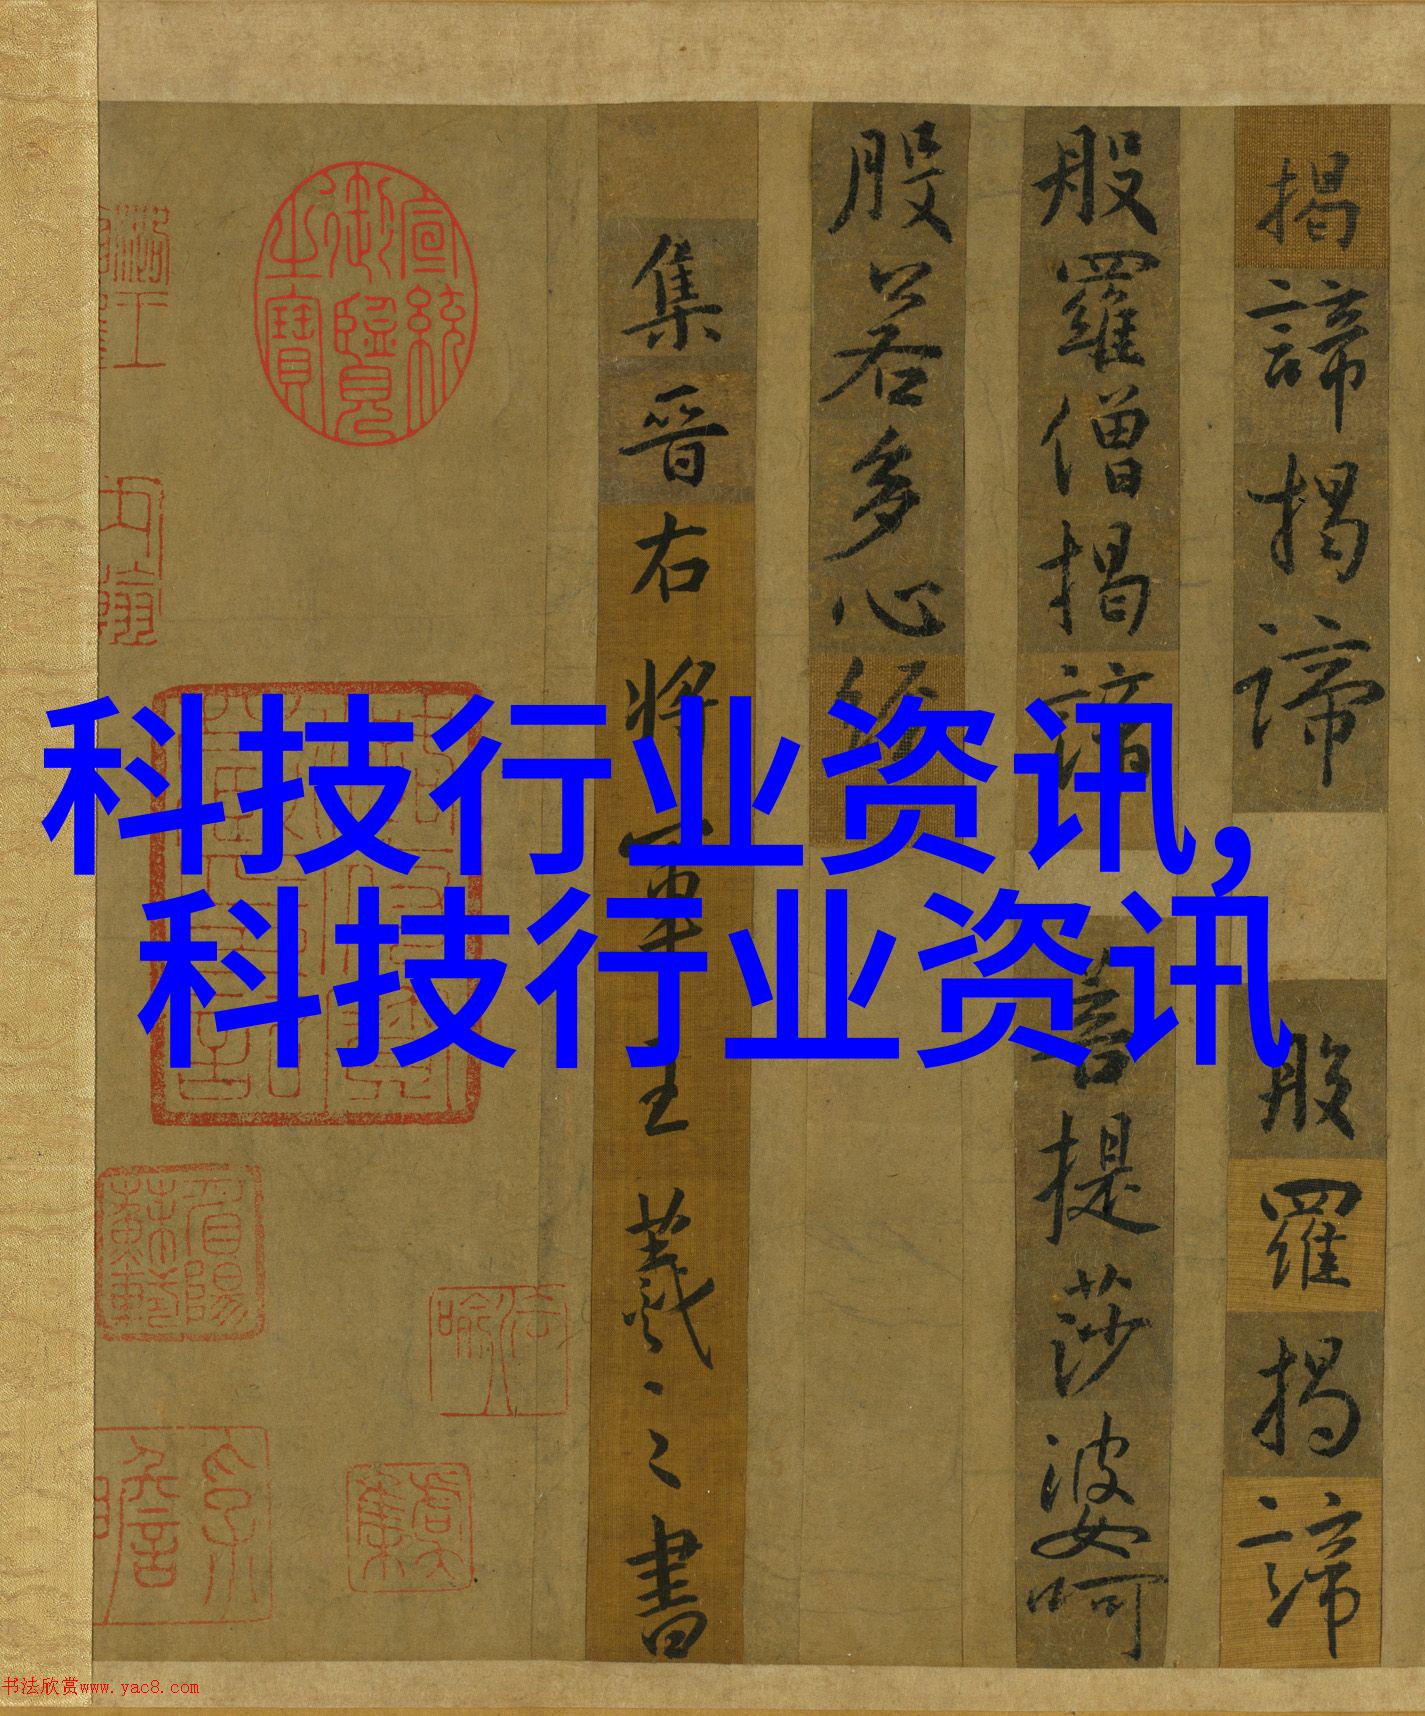 揭諦揭諦 般羅揭諦
般羅僧揭諦 菩提莎婆呵
般若多心經
集晉右將軍王羲之書
宣統御覽之寶
科技行业资讯,
科技行业资讯
眉陽蘇軾
书法欣赏www.yac8.com